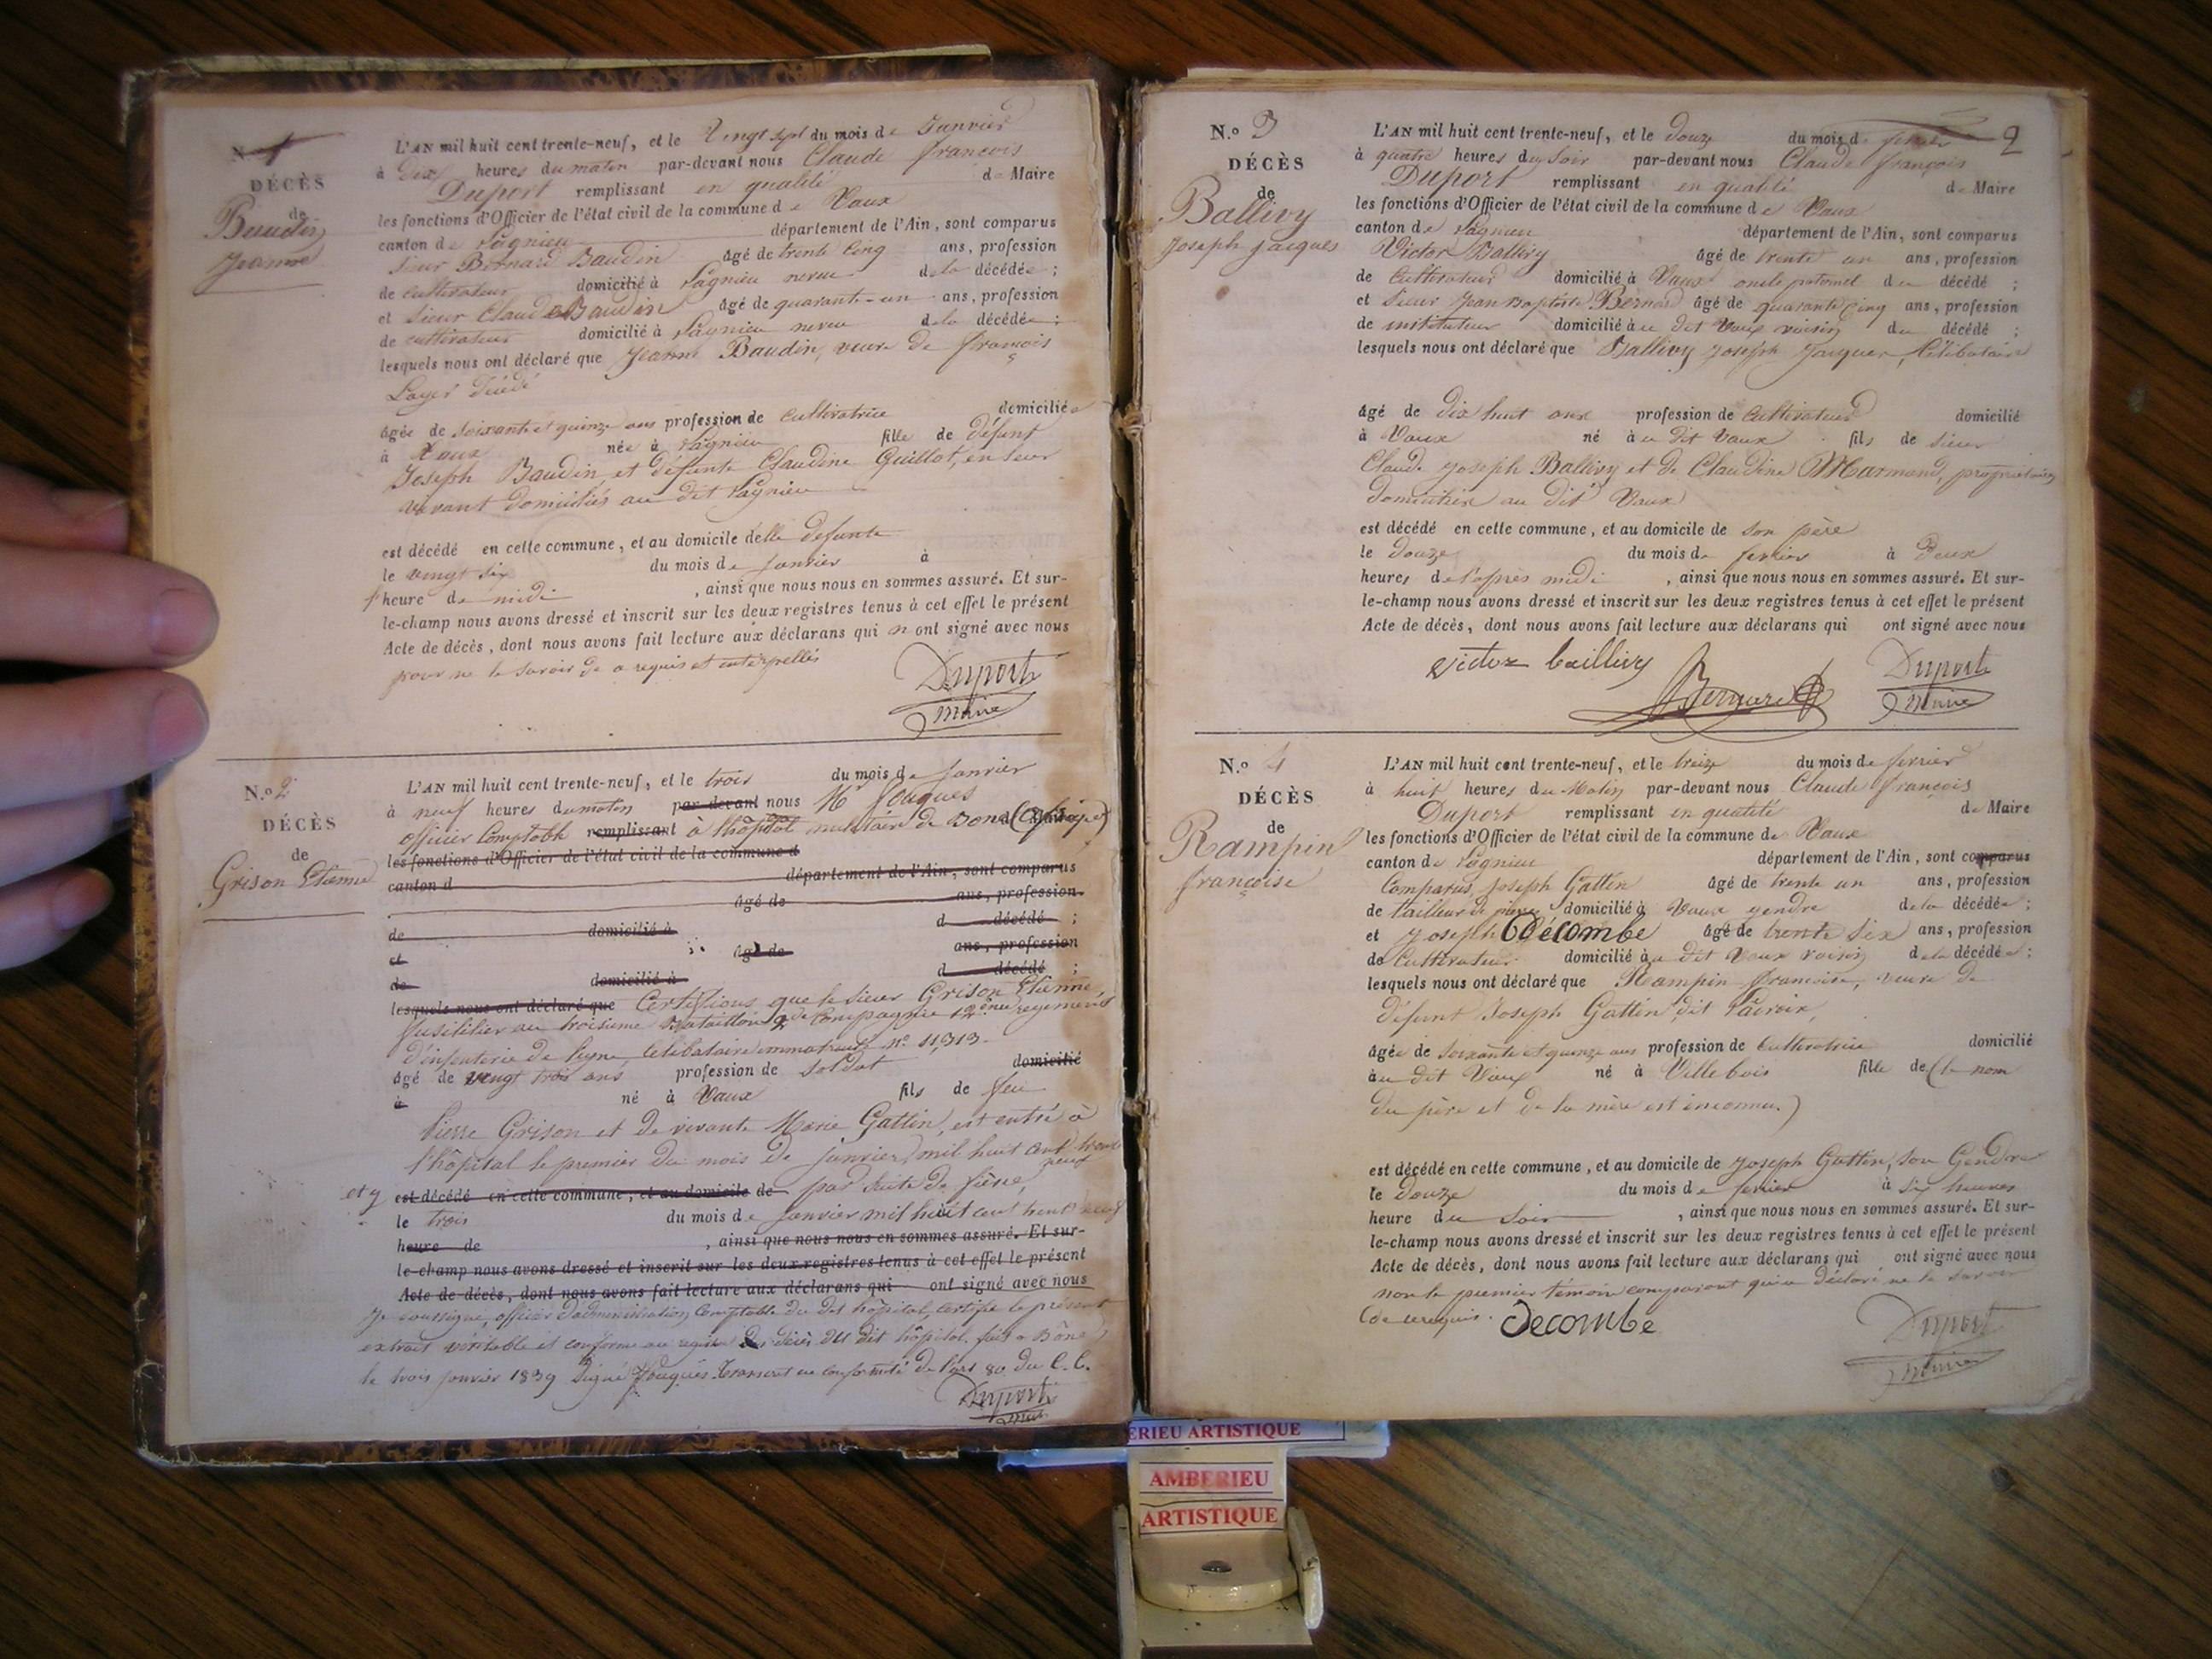 N.o 1
DÉCÈS
de
Baudin
Jeanne
L'AN mil huit cent trente-neuf, et le Vingt sept du mois de Janvier
à Dix heures du matin par-devant nous Claude françois
Duport remplissant en qualité de Maire
les fonctions d'Officier de l'état civil de la commune de Vaux
canton de Lagnieu département de l'Ain, sont comparus
Sieur Bernard Baudin âgé de trente cinq ans, profession
de cultivateur domicilié à Lagnieu neveu de la décédée ;
et Sieur Claude Baudin âgé de quarante-un ans, profession
de cultivateur domicilié à Lagnieu neveu de la décédée ;
lesquels nous ont déclaré que Jeanne Baudin, veuve de françois
Layer
âgée de soixante et quinze ans profession de cultivatrice domiciliée
à Vaux née à Lagnieu fille de défunt
Joseph Baudin, et défunte Claudine Guillot, en leur
vivant domiciliés au dit Lagnieu
est décédé en cette commune, et au domicile delle defunte
le vingt six du mois de janvier à
heure de midi , ainsi que nous nous en sommes assuré. Et sur-
le-champ nous avons dressé et inscrit sur les deux registres tenus à cet effet le présent
Acte de décès, dont nous avons fait lecture aux déclarans qui n ont signé avec nous
pour ne le savoir de ce requis et interpellés
Duport
Maire
N.o 2
DÉCÈS
de
Grison Etienne
L'AN mil huit cent trente-neuf, et le trois du mois de janvier
à neuf heures du matin par-devant nous Mr fouques
officier Comptable remplissant à l'hôpital militaire de Bone (Afrique)
les fonctions d'Officier de l'état civil de la commune d
canton d département de l'Ain, sont comparus
âgé de ans, profession
de domicilié à d décédé ;
et âgé de ans, profession
de domicilié à d décédé ;
lesquels nous ont déclaré que Certifions que le sieur Grison Etienne,
fusilier au troisieme Bataillon 2e Compagnie 12ème regiment
d'infanterie de ligne célibataire immatriculé no 11,313
âgé de vingt trois ans profession de soldat domicilié
à né à Vaux fils de feu
Pierre Grison et de vivante Marie Gattin, est entré à
l'hôpital le premier du mois de janvier mil huit cent trente
neuf
et y est décédé en cette commune, et au domicile de par suite de fièvre,
le trois du mois de janvier mil huit cent trente neuf
heure de , ainsi que nous nous en sommes assuré. Et sur-
le-champ nous avons dressé et inscrit sur les deux registres tenus à cet effet le présent
Acte de décès, dont nous avons fait lecture aux déclarans qui ont signé avec nous
Je soussigné, officier d'administration Comptable du dit hôpital, certifie le présent
extrait véritable et conforme au registre des décès du dit hôpital. fait a Bône
le trois janvier 1839 Signé fouques Transcrit en conformité de l'art 80 du C. C.
Duport
Maire
2
N.o 3
DÉCÈS
de
Ballivy
Joseph Jacques
L'AN mil huit cent trente-neuf, et le Douze du mois de fevrier
à quatre heures du soir par-devant nous Claude françois
Duport remplissant en qualité de Maire
les fonctions d'Officier de l'état civil de la commune de Vaux
canton de Lagnieu département de l'Ain, sont comparus
Victor Ballivy âgé de trente un ans, profession
de Cultivateur domicilié à Vaux oncle paternel du décédé ;
et Sieur Jean Baptiste Bernard âgé de quarante cinq ans, profession
de instituteur domicilié à u dit Vaux voisin du décédé ;
lesquels nous ont déclaré que Ballivy Joseph Jacques, Célibataire
âgé de dix huit ans profession de Cultivateur domicilié
à Vaux né à u dit Vaux fils de sieur
Claude Joseph Ballivy et de Claudine Marmand, proprietaires
domiciliés au dit Vaux
est décédé en cette commune, et au domicile de son père
le Douze du mois de fevrier à Deux
heures de l'après midi , ainsi que nous nous en sommes assuré. Et sur-
le-champ nous avons dressé et inscrit sur les deux registres tenus à cet effet le présent
Acte de décès, dont nous avons fait lecture aux déclarans qui ont signé avec nous
victor baillivy
Bernard
Duport
Maire
N.o 4
DÉCÈS
de
Rampin
françoise
L'AN mil huit cent trente-neuf, et le treize du mois de fevrier
à huit heures du Matin par-devant nous Claude françois
Duport remplissant en qualité de Maire
les fonctions d'Officier de l'état civil de la commune de Vaux
canton de Lagnieu département de l'Ain, sont comparus
Comparus, Joseph Gattin âgé de trente un ans, profession
de tailleur de pierre domicilié à Vaux gendre de la décédée ;
et Joseph Décombe âgé de trente six ans, profession
de Cultivateur domicilié à u dit Vaux voisin de la décédée ;
lesquels nous ont déclaré que Rampin francoise, veuve de
défunt Joseph Gattin dit Lacroix,
âgée de soixante et quinze ans profession de Cultivatrice domicilié
à u dit Vaux né à Villebois fille de (le nom
du père et de la mère est inconnu.)
est décédé en cette commune, et au domicile de Joseph Gattin, son Gendre
le Douze du mois de fevrier à six heures
heure du soir , ainsi que nous nous en sommes assuré. Et sur-
le-champ nous avons dressé et inscrit sur les deux registres tenus à cet effet le présent
Acte de décès, dont nous avons fait lecture aux déclarans qui ont signé avec nous
non le premier témoin comparant qui a déclaré ne le savoir
de ce requis. Decombe
Duport
Maire
ERIEU ARTISTIQUE
AMBERIEU
ARTISTIQUE